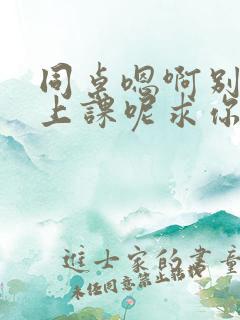 同桌嗯啊别
上课呢求你
进士家的书童
未经同意禁止转载